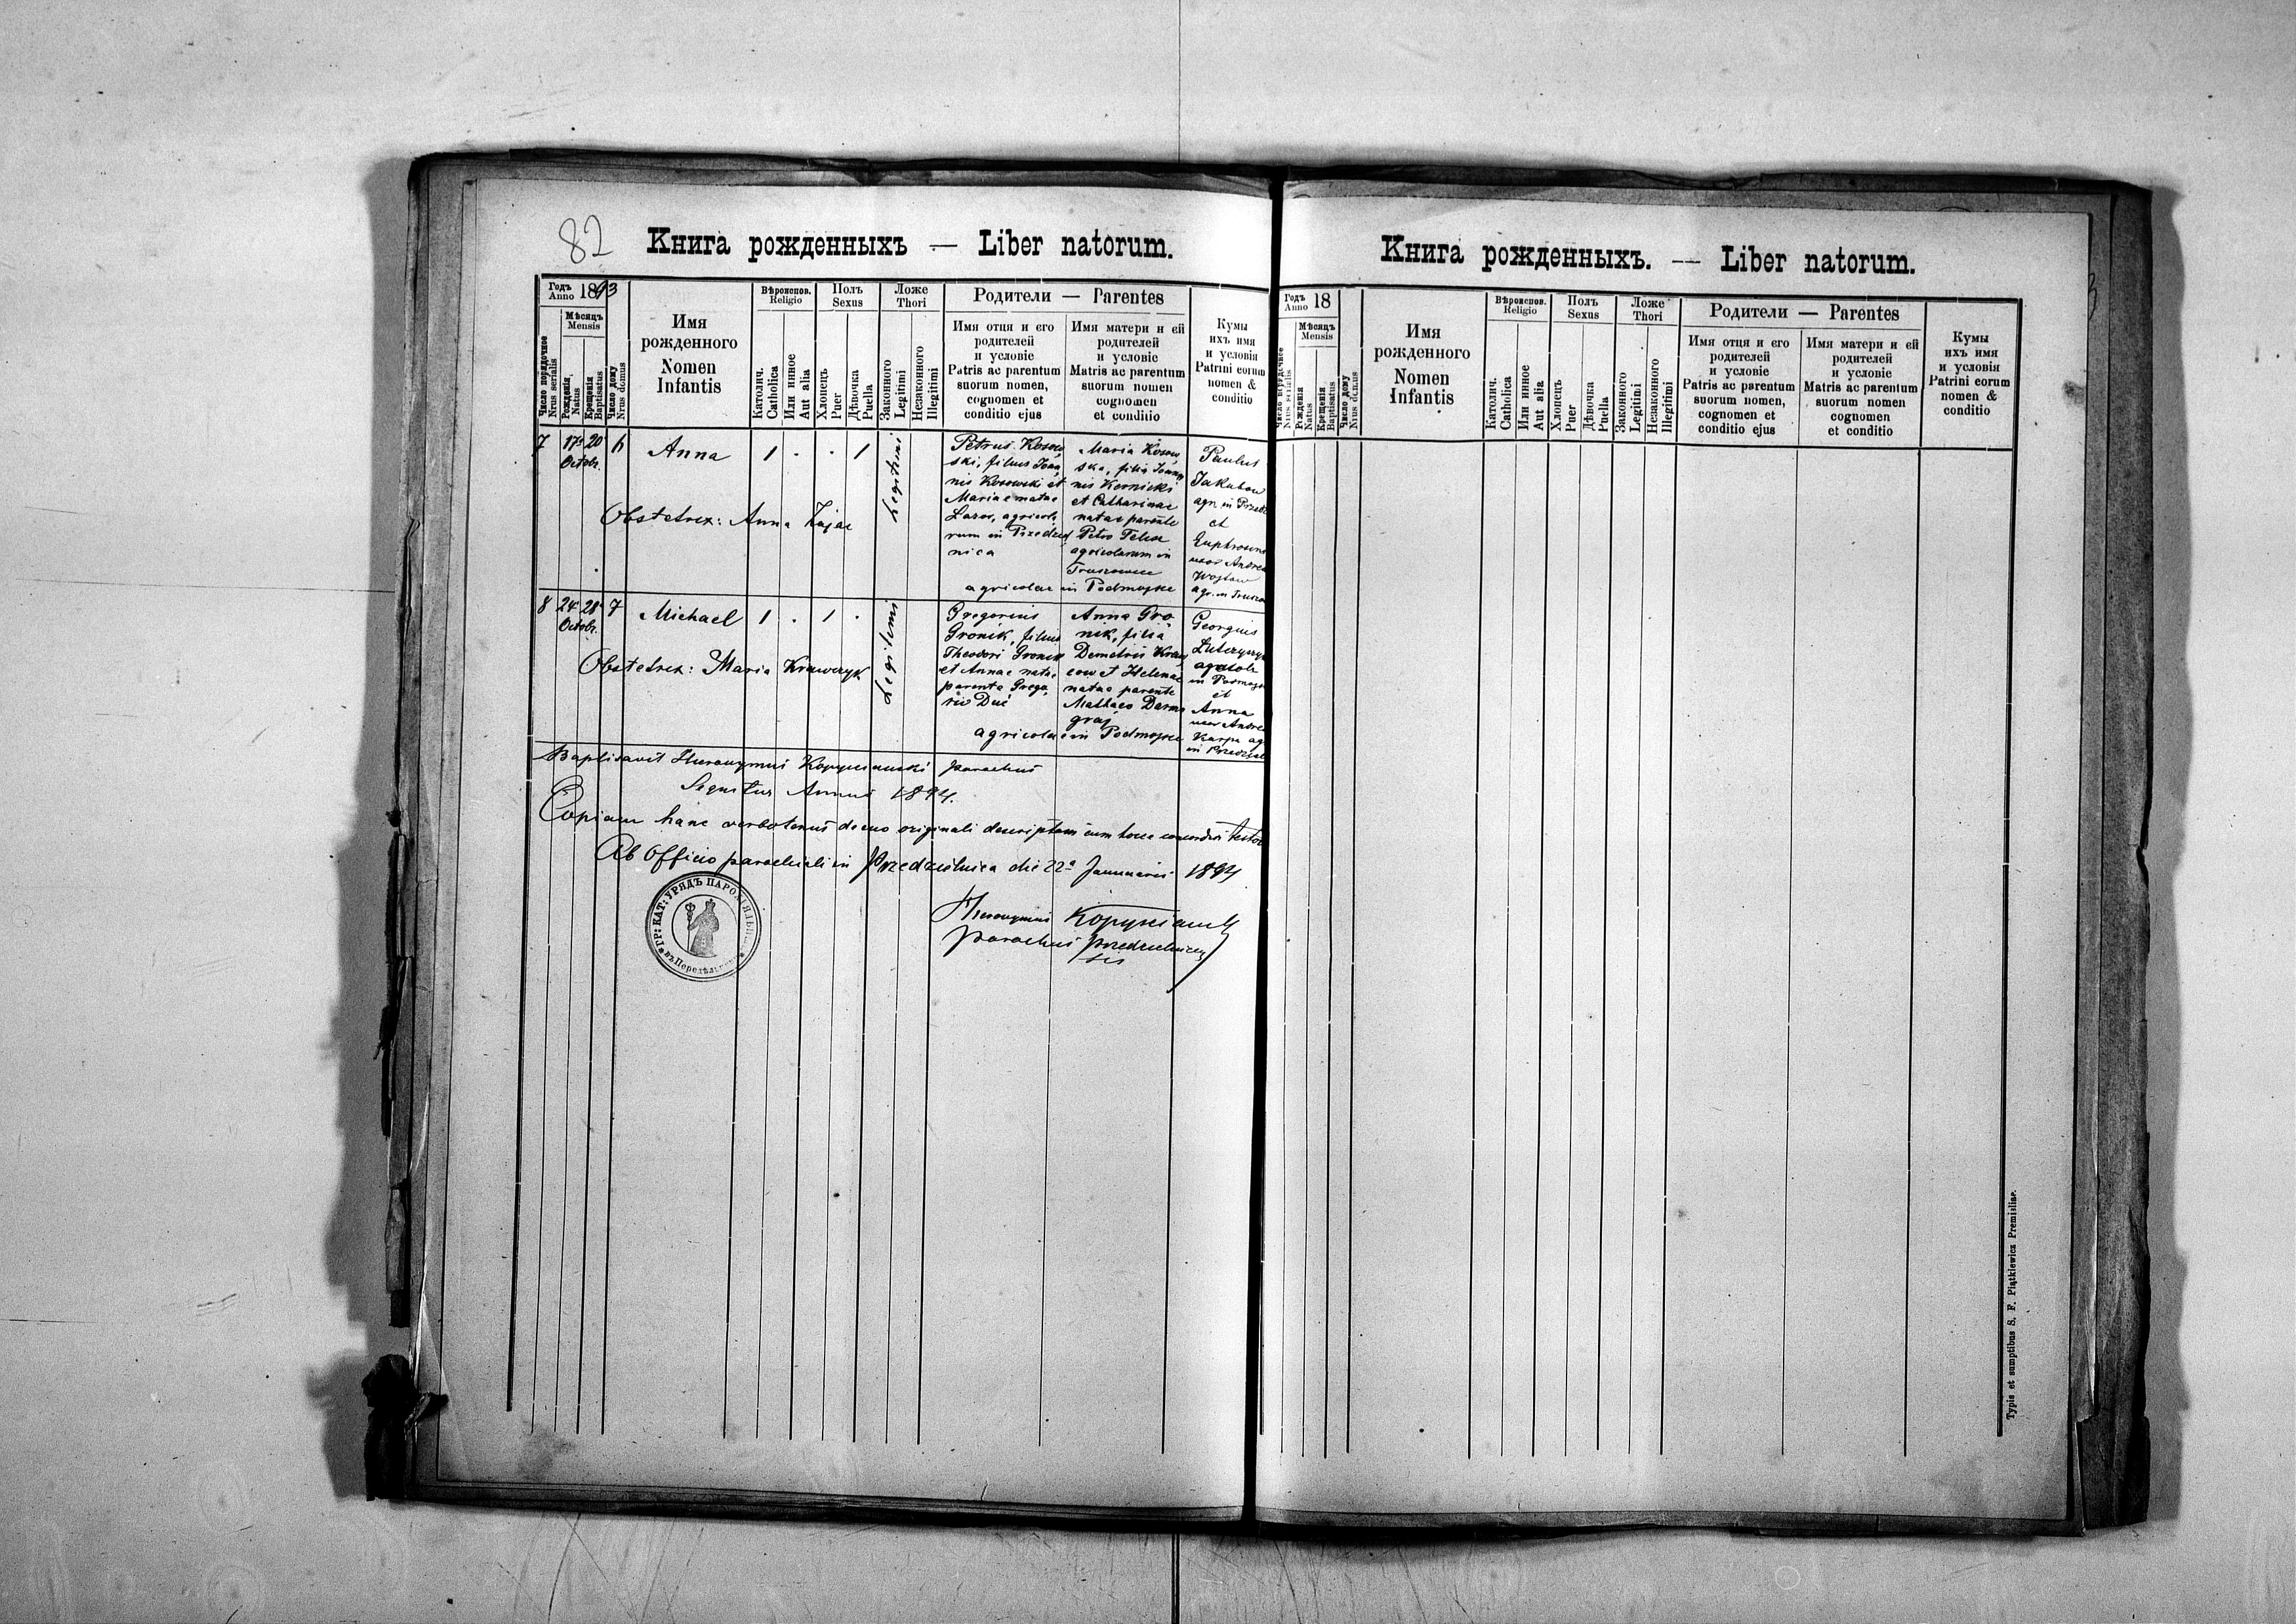 82
Книга рожденныхъ — Liber natorum.
Годъ
Anno 1893
Мѣсяцъ
Mensis
Число порядочное
Nrus serialis
Рожденія
Natus
Крещенія
Baptisatus
Число дому
Nrus domus
Имя
рожденного
Nomen
Infantis
Вѣроиспов.
Religio
Католич.
Catholica
Или инное
Aut alia
Полъ
Sexus
Хлопецъ
Puer
Дѣвочка
Puella
Ложе
Thori
Законного
Legitimi
Незаконного
Illegitimi
Родители — Parentes
Имя отця и его
родителей
и условіе
Patris ac parentum
suorum nomen,
cognomen et
conditio ejus
Имя матери и ей
родителей
и условіе
Matris ac parentum
suorum nomen
cognomen
et conditio
Кумы
ихъ имя
и условія
Patrini eorum
nomen &
conditio
7 17a 20 6 Anna 1 . . 1 Legitimi
Octobr.
Petrus Kosow
ski, filius Joan
nis Kosowski et
Mariae natae
Lazor, agricola
rum in Przedziel
nica
Maria Kosow
ska, filia Joann
nis Kernicki
et Catharinae
natae parente
Petro Telea
agricolarum in
Truszowice
agricolae in Podmojsce
Paulus
Jakubow
agr. in
et
Euphrosina
uxor Andreae
Wojtow
agr. in
Obstetrex: Anna Zając
8 24 28 7 Michael 1 . 1 . Legitimi
Octobr.
Gregorius
Gronik, filius
Theodori Gronik
et Annae natae
parente Grego
rio Duć
Anna Gro
nik, filia
Demetrii Kraw
cow et Helenae
natae parente
Mathaeo Darmo
graj
agricolae in Podmojsce
Georgius
agricola
in Podmojsce
et
Anna
uxor Andreae
Karpa agr
in Przedziel
Obstetrex: Maria Krawczyk
Baptisavit Hieronymus Kopyscianski parochus
Sequitur Annus 1894.
Copiam hanc verbotenus de suo originali descriptam cum hocce concordari testor
Ab Officio parochiali in Przedzielnica die 22a Januarii 1894
Hieronymus Kopyscianski
parochus Przedzielnicen
sis
ГР: КАТ: УРЯДЪ ПАРОХІЯЛЬН.
въ Передѣльници
Книга рожденныхъ. — Liber natorum.
Годъ
Anno 18
Мѣсяцъ
Mensis
Число порядочное
Nrus serialis
Рожденія
Natus
Крещенія
Baptisatus
Число дому
Nrus domus
Имя
рожденного
Nomen
Infantis
Вѣроиспов.
Religio
Католич.
Catholica
Или инное
Aut alia
Полъ
Sexus
Хлопецъ
Puer
Дѣвочка
Puella
Ложе
Thori
Законного
Legitimi
Незаконного
Illegitimi
Родители — Parentes
Имя отця и его
родителей
и условіе
Patris ac parentum
suorum nomen,
cognomen et
conditio ejus
Имя матери и ей
родителей
и условіе
Matris ac parentum
suorum nomen
cognomen
et conditio
Кумы
ихъ имя
и условія
Patrini eorum
nomen &
conditio
Typis et sumptibus S. F. Piątkiewicz Premisliae.